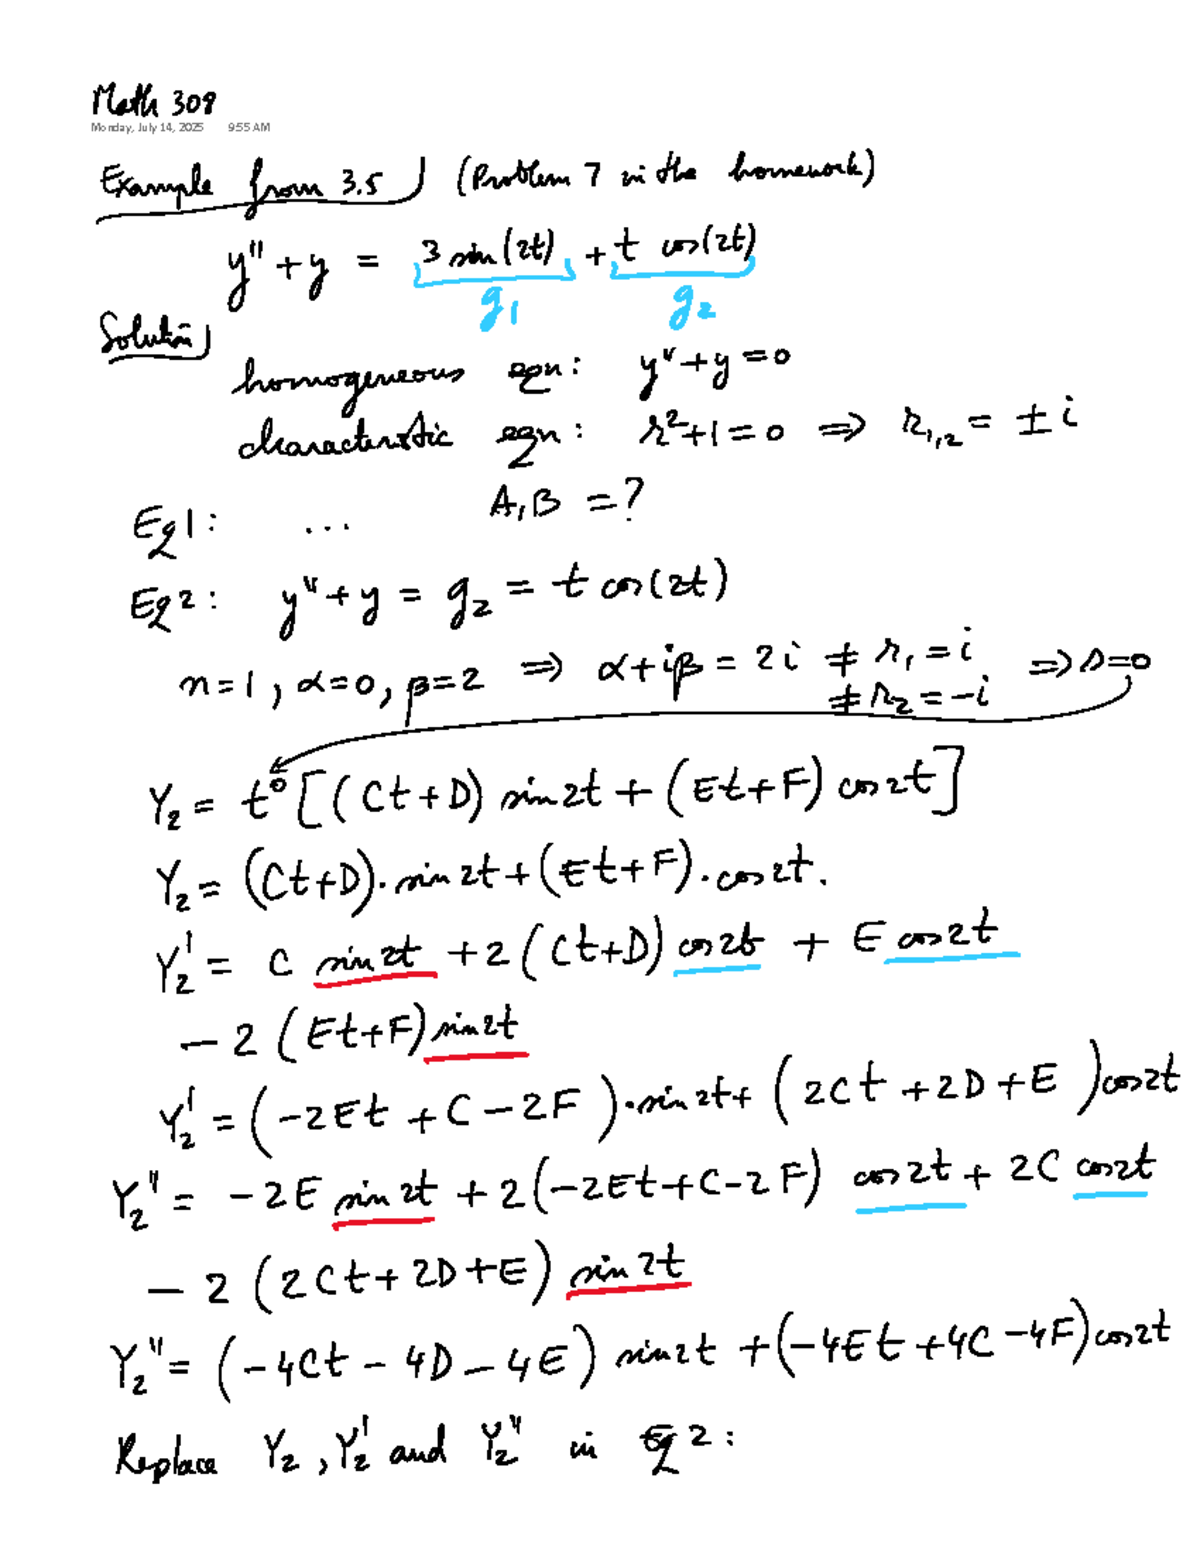 Math 308
Monday, July 14, 2025 9:55 AM
Example from 3.5 (Problem 7 in the homework)
y'' + y = 3 sin(2t) + t cos(2t)
g₁ g₂
Solution
homogeneous eqn: y'' + y = 0
characteristic eqn: r² + 1 = 0 ⇒ r₁,₂ = ± i
Eq 1: ... A, B = ?
Eq 2: y'' + y = g₂ = t cos(2t)
n = 1, α = 0, β = 2 ⇒ α + iβ = 2i ≠ r₁ = i ⇒ s = 0
≠ r₂ = -i
Y₂ = t⁰ [(Ct + D) sin 2t + (Et + F) cos 2t]
Y₂ = (Ct + D) · sin 2t + (Et + F) · cos 2t.
Y₂' = C sin 2t + 2 (Ct + D) cos 2t + E cos 2t
- 2 (Et + F) sin 2t
Y₂' = (-2Et + C - 2F) · sin 2t + (2Ct + 2D + E) cos 2t
Y₂'' = -2E sin 2t + 2(-2Et + C - 2F) cos 2t + 2C cos 2t
- 2 (2Ct + 2D + E) sin 2t
Y₂'' = (-4Ct - 4D - 4E) sin 2t + (-4Et + 4C - 4F) cos 2t
Replace Y₂, Y₂' and Y₂'' in Eq 2: